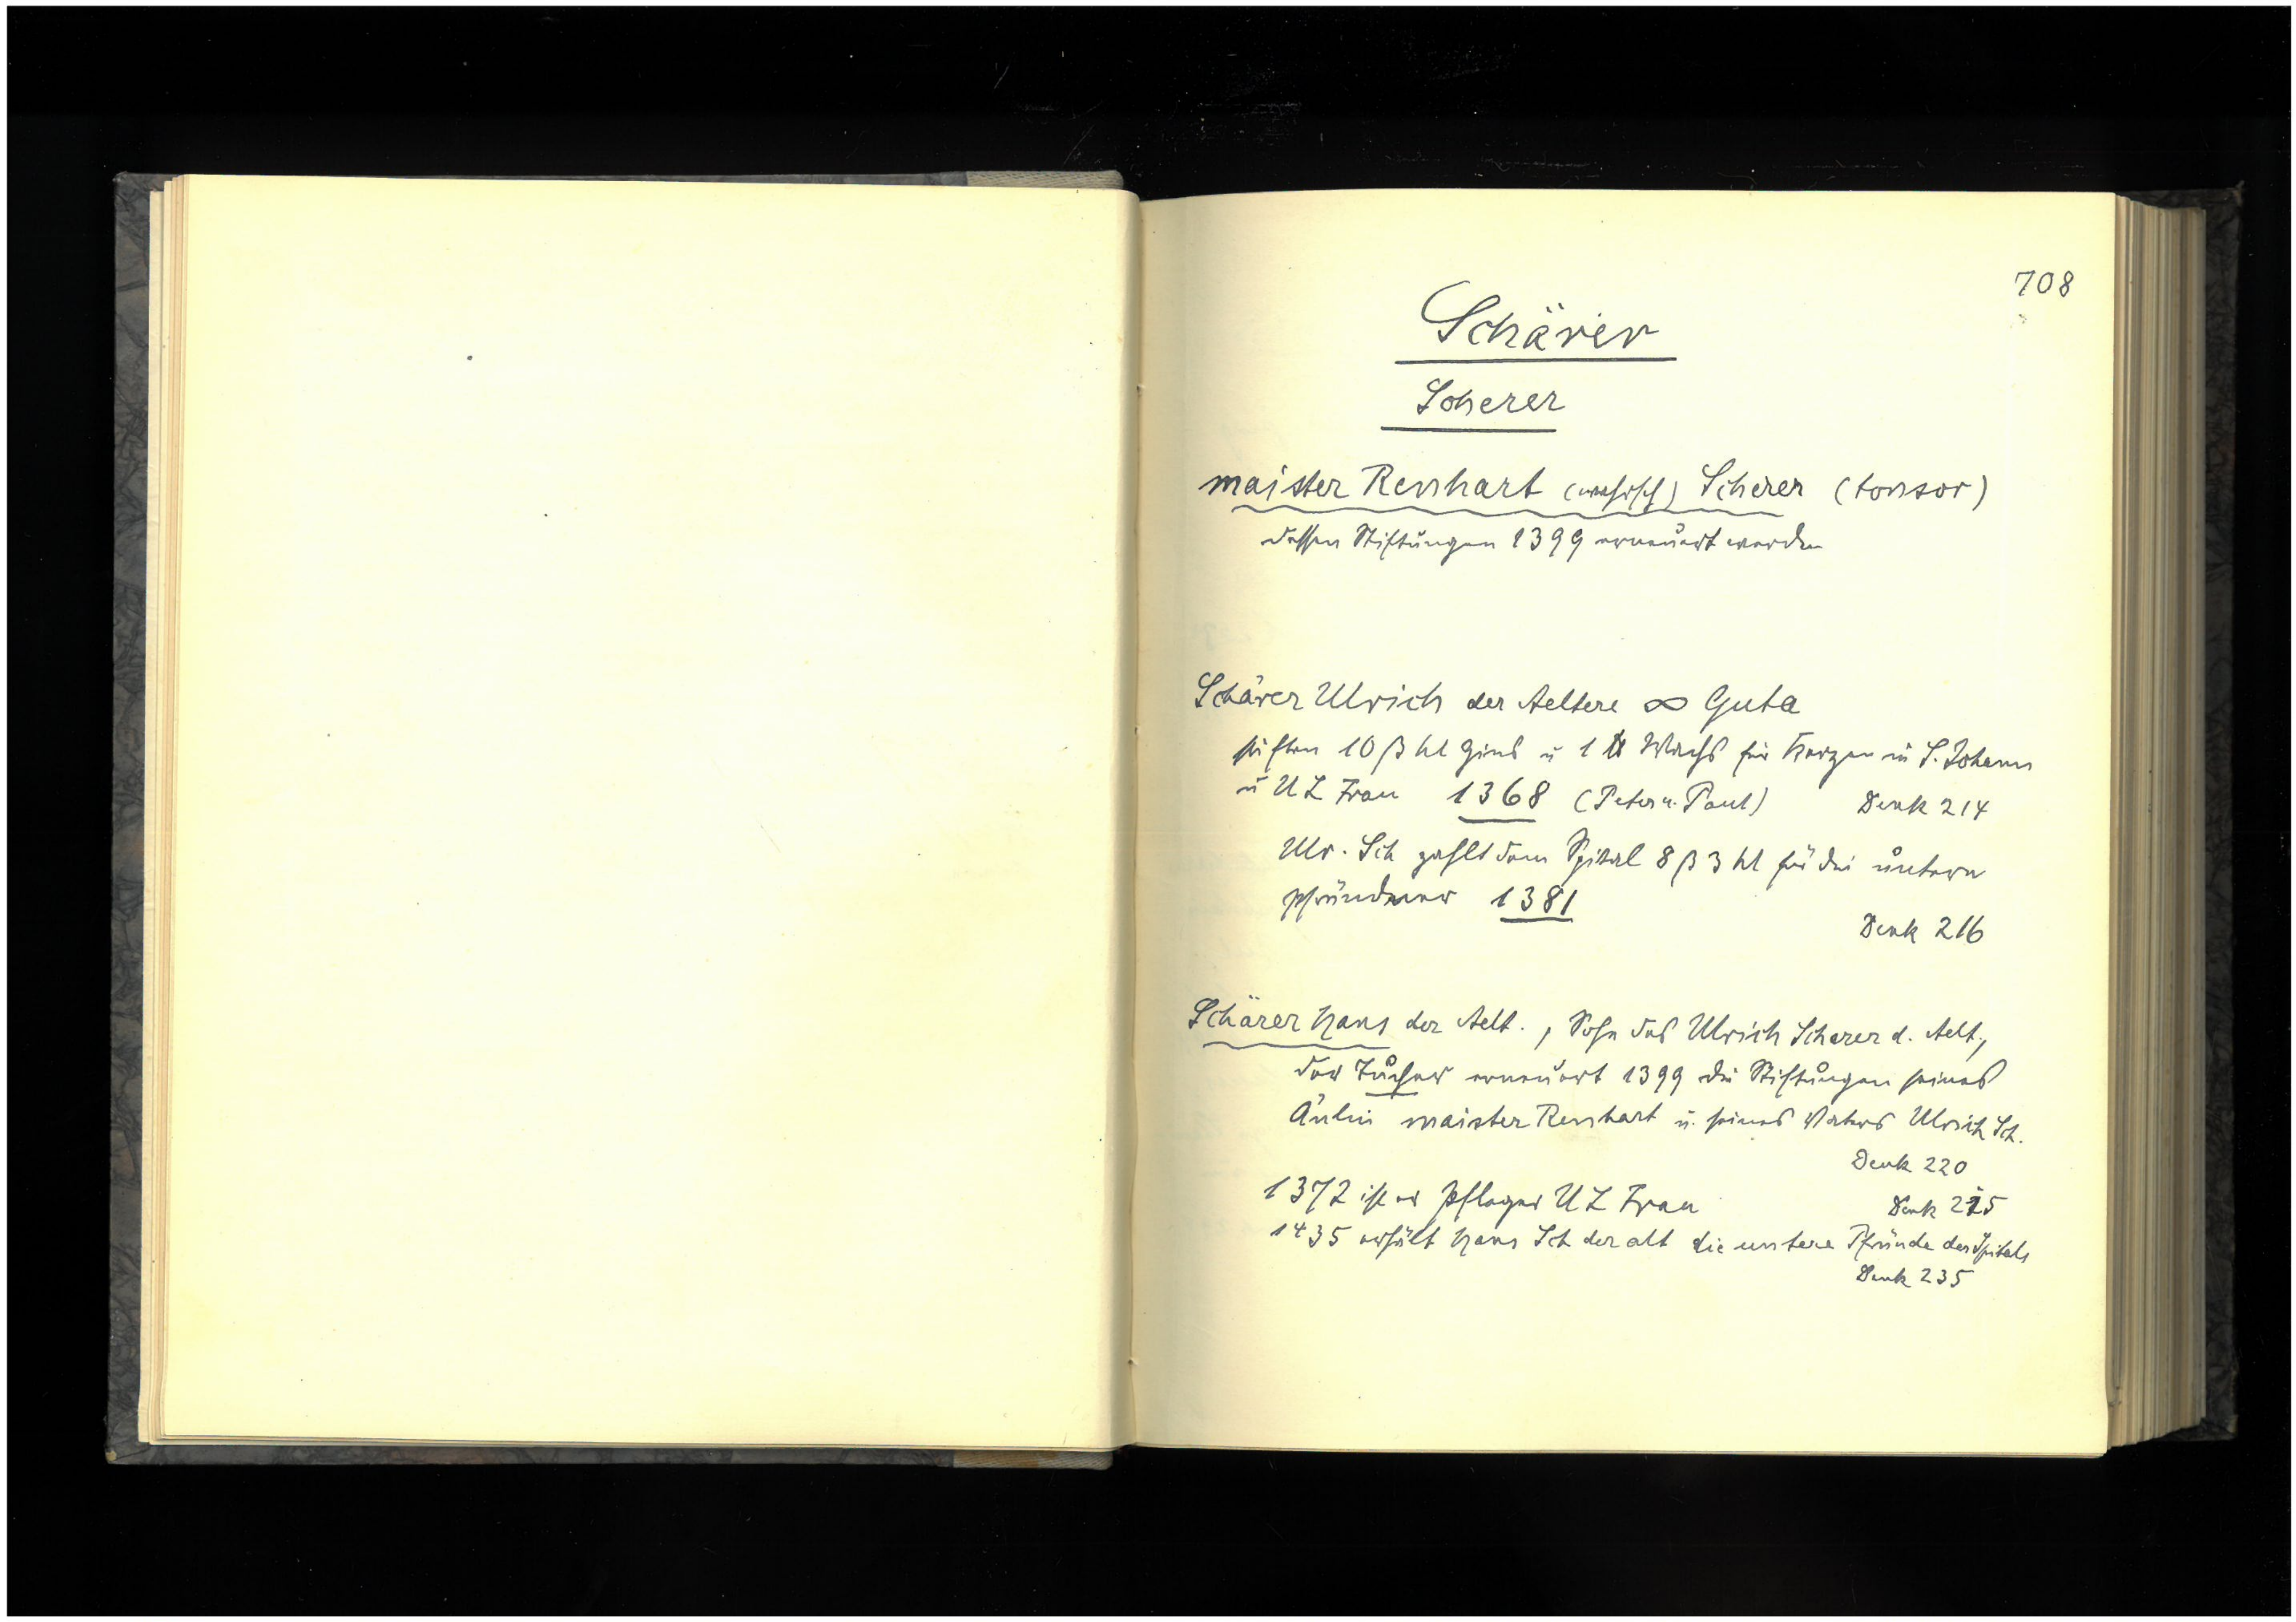 708
Schärer
Scherer
maister Renhart (wahrsch) Scherer (tonsor)
dessen Stiftungen 1399 erneuert werden
Schärer Ulrich der Aeltere ∞ Guta
stiften 10 ß hl Zins u 1 ℔ Wachs für Kerzen in S. Johann
u U L Frau 1368 (Peter u. Paul) Denk 214
Ulr. Sch zahlt dem Spital 8 ß 3 hl für die untern
Pfründner 1381
Denk 216
Schärer Hans der Aelt., Sohn des Ulrich Scherer d. Aelt.,
der Tucher erneuert 1399 die Stiftungen seines
Änlin maister Renhart u. seines Vaters Ulrich Sch.
Denk 220
1372 ist er Pfleger U L Frau Denk 215
1435 erhält Hans Sch der alt die untere Pfründe des Spitals
Denk 235